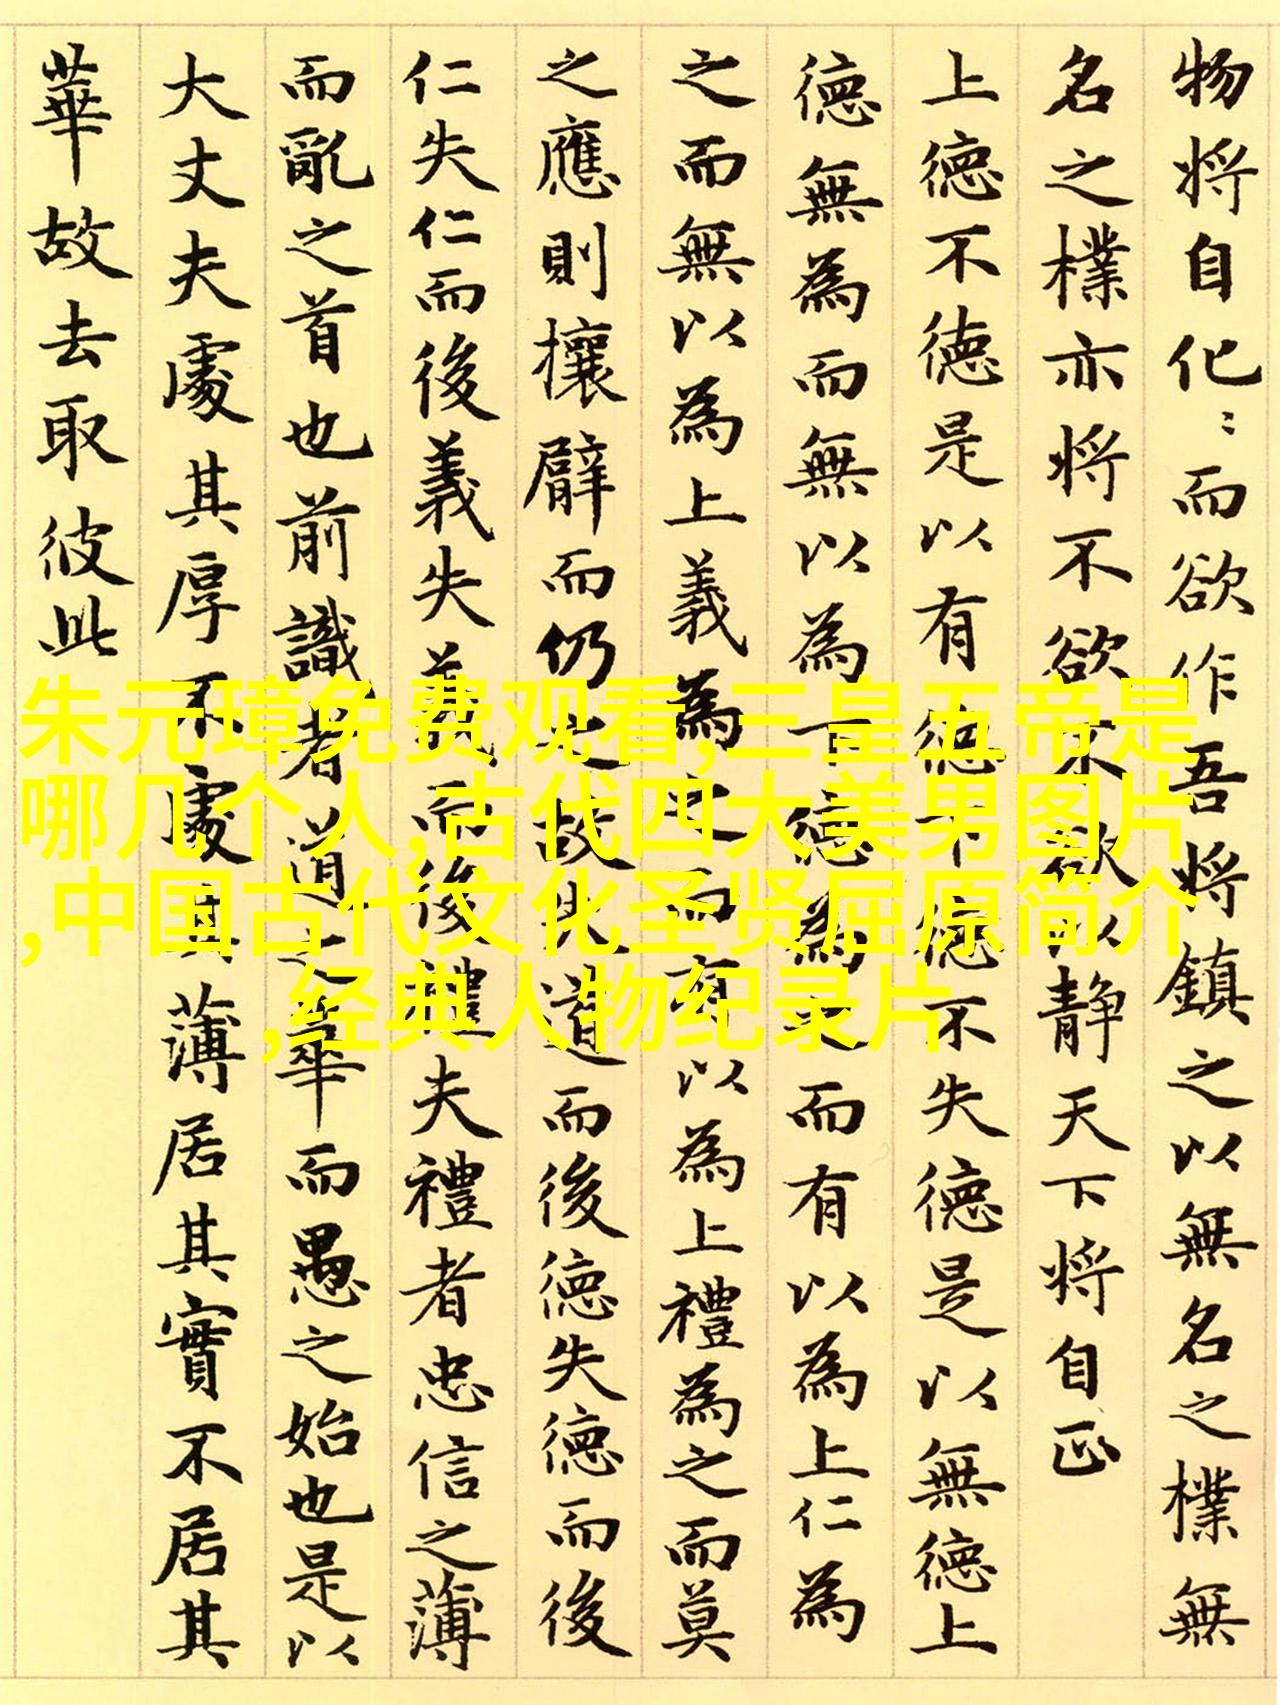 物将自化〻而欲作吾将鎮之以無名之樸無
名之樸亦将不欲不欲以静天下将自正
上德不德是以有德下德不失德是以無德上
德無為而無以為下德為之而有以為上仁為
之而無以為上義為之而有以為上禮為之而莫
之應則攘臂而仍之故失道而後德失德而後
仁失仁而後義失義而後禮夫禮者忠信之薄
而亂之首也前識者道之華而愚之始也是以
大丈夫處其厚不處其薄居其實不居其
華故去取彼此
朱元璋免费观看,三皇五帝是
哪几个人,古代四大美男图片
,中国古代文化圣贤屈原简介
,经典人物纪录片